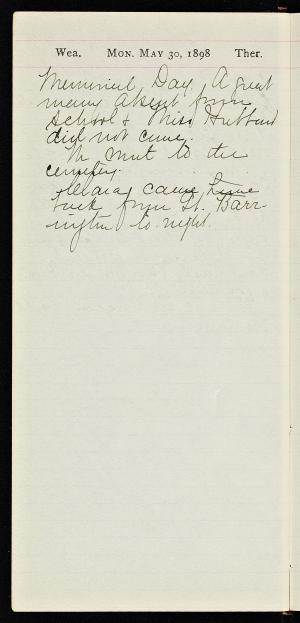 Wea. Mon. May 30, 1898 Ther.
Memorial Day. A great
many absent from
school & Miss Hubbard
did not come.
We went to the
cemetery.
Clara came home
back from Gt. Barr-
ington to night.